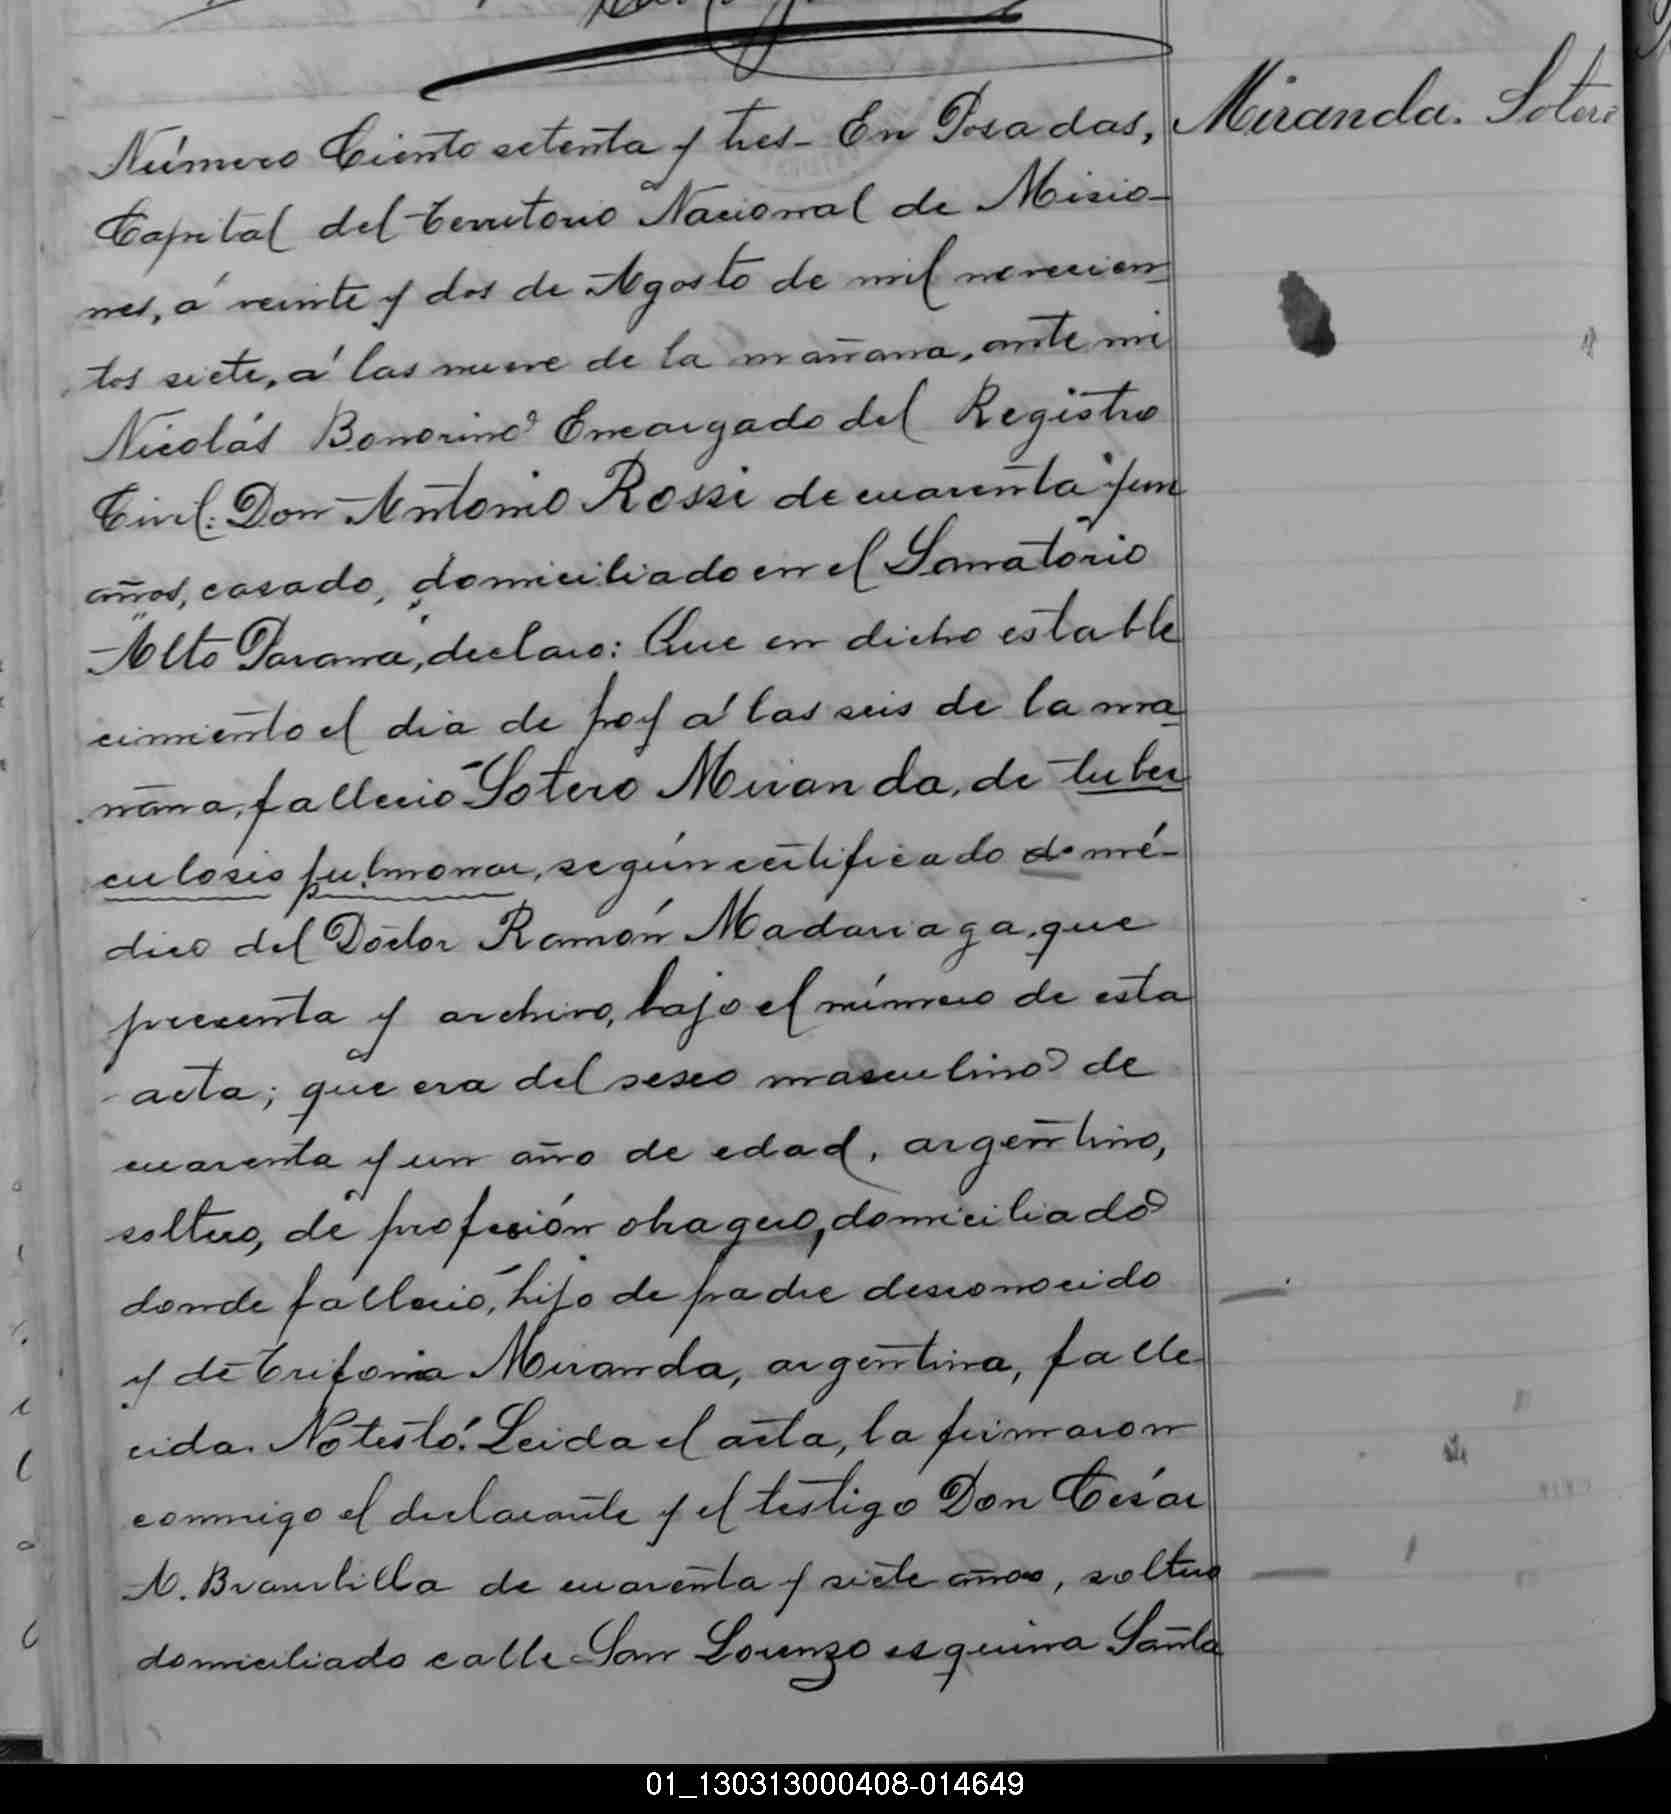 Miranda. Sotero
Número Ciento setenta y tres - En Posadas,
Capital del Territorio Nacional de Misio-
nes, á veinte y dos de Agosto de mil novecien-
tos siete, á las nueve de la mañana, ante mi
Nicolás Bonorino Encargado del Registro
Civil: Don Antonio Rossi de cuarenta y un
años, casado, domiciliado en el Sanatorio
"Alto Parana", declaro: Que en dicho estable
cimiento el dia de hoy á las seis de la ma-
ñana, fallecio Sotero Miranda, de tuber
culosis pulmonar, según certificado de mé-
dico del Doctor Ramón Madariaga, que
presenta y archivo, bajo el número de esta
acta; que era del sexo masculino de
cuarenta y un año de edad, argentino,
soltero, de profesión obragero, domiciliado
donde fallecio, hijo de padre desconocido
y de Trifonia Miranda, argentina, falle
cida. No testó. Leida el acta, la firmaron
conmigo el declarante y el testigo Don César
A. Brambilla de cuarenta y siete años, soltero
domiciliado calle San Lorenzo esquina Santa
01_130313000408-014649